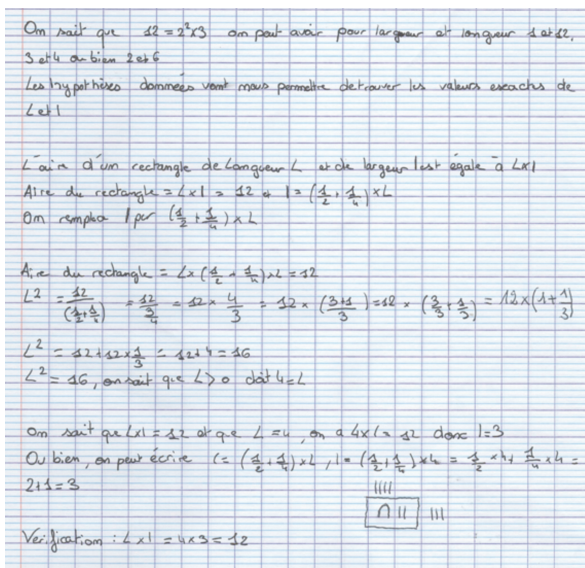 On sait que 12 = 2² x 3 on peut avoir pour largueur et longueur 1 et 12,
3 et 4 ou bien 2 et 6
Les hypothèses données vont nous permettre de trouver les valeurs exachs de
L et l
L'aire d'un rectangle de Longueur L et de largeur l est égale à L x l
Aire du rectangle = L x l = 12 et l = (1/2 + 1/4) x L
On remplac l par (1/2 + 1/4) x L
Aire du rectangle = L x (1/2 + 1/4) x L = 12
L² = 12/(1/2 + 1/4) = 12/(3/4) = 12 x 4/3 = 12 x (3+1/3) = 12 x (3/3 + 1/3) = 12 x (1 + 1/3)
L² = 12 + 12 x 1/3 = 12 + 4 = 16
L² = 16, on sait que L > 0 doit 4 = L
On sait que L x l = 12 et que L = 4, on a 4 x l = 12 donc l = 3
Ou bien, on peut écrire l = (1/2 + 1/4) x L, l = (1/2 + 1/4) x 4 = 1/2 x 4 + 1/4 x 4 =
2 + 1 = 3
||||
∩ || |||
Verification : L x l = 4 x 3 = 12